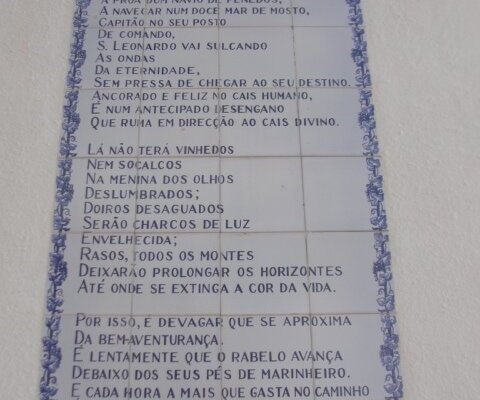 À PROA DUM NAVIO DE PENEDOS,
A NAVEGAR NUM DOCE MAR DE MOSTO,
CAPITÃO NO SEU POSTO
DE COMANDO,
S. LEONARDO VAI SULCANDO
AS ONDAS
DA ETERNIDADE,
SEM PRESSA DE CHEGAR AO SEU DESTINO.
ANCORADO E FELIZ NO CAIS HUMANO,
É NUM ANTECIPADO DESENGANO
QUE RUMA EM DIRECÇÃO AO CAIS DIVINO.
LÁ NÃO TERÁ VINHEDOS
NEM SOCALCOS
NA MENINA DOS OLHOS
DESLUMBRADOS;
DOIROS DESAGUADOS
SERÃO CHARCOS DE LUZ
ENVELHECIDA;
RASOS, TODOS OS MONTES
DEIXARÃO PROLONGAR OS HORIZONTES
ATÉ ONDE SE EXTINGA A COR DA VIDA.
POR ISSO, É DEVAGAR QUE SE APROXIMA
DA BEM-AVENTURANÇA.
É LENTAMENTE QUE O RABELO AVANÇA
DEBAIXO DOS SEUS PÉS DE MARINHEIRO.
E CADA HORA A MAIS QUE GASTA NO CAMINHO